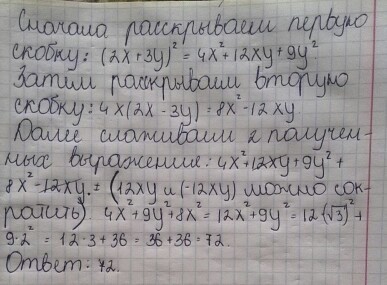 Сначала расскрываем первую
скобку: (2x+3y)² = 4x²+12xy+9y²
Затим раскрываем вторую
скобку: 4x(2x-3y)=8x²-12xy
Далее слаживаем 2 получен-
ных выражения: 4x²+12xy+9y²+
8x²-12xy.= (12xy и (-12xy) можно сок-
ратить) 4x²+9y²+8x²=12x²+9y²=12(√3)²+
9·2²=12·3+36=36+36=72.
Ответ: 72.